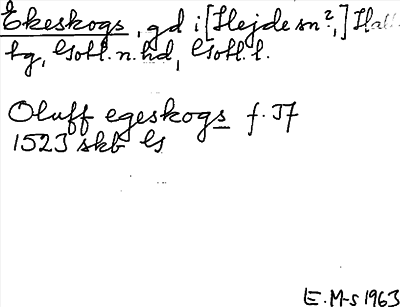 Ekeskogs, gd i [Hejde sn?,] Hall
tg, Gotl. n. hd, Gotl. l.
Oluff egeskogs f. 37
1523 skb G
E. M-s 1963